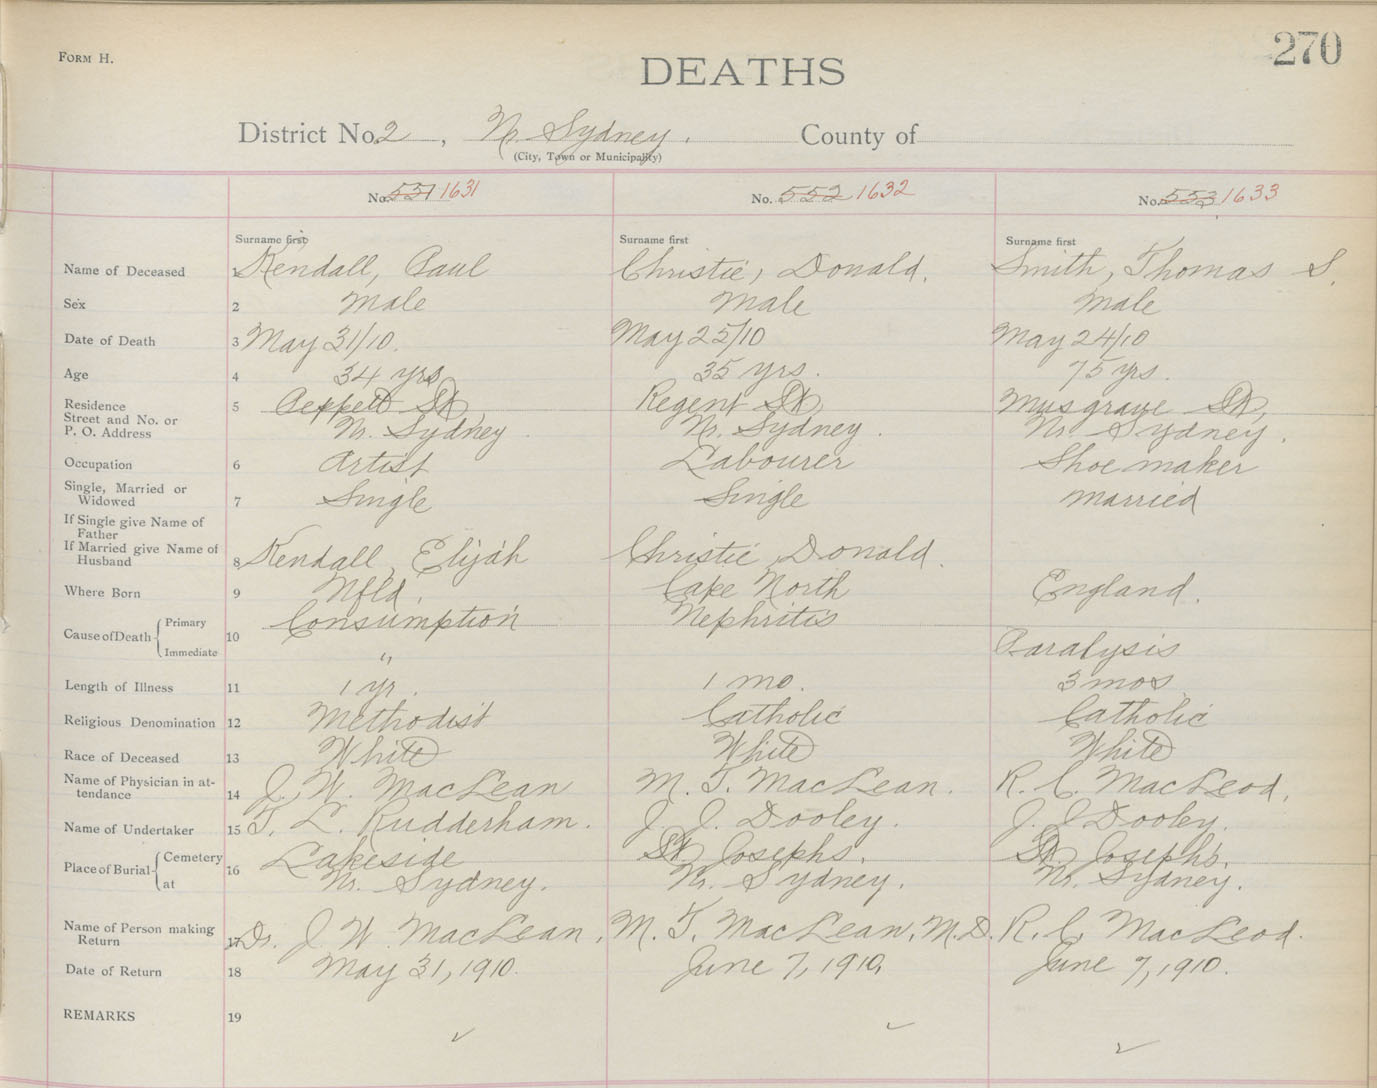 FORM H.
270
DEATHS
District No. 2, No. Sydney. County of
(City, Town or Municipality)
No. 551 1631 No. 552 1632 No. 553 1633
Surname first Surname first Surname first
Name of Deceased 1 Kendall, Paul Christie, Donald. Smith, Thomas S.
Sex 2 Male Male Male
Date of Death 3 May 31/10. May 25/10 May 24/10
Age 4 34 yrs. 35 yrs. 75 yrs.
Residence 5 Peppett St, Regent St, Musgrave St,
Street and No. or
P. O. Address No. Sydney. No. Sydney. No. Sydney.
Occupation 6 Artist Labourer Shoe maker
Single, Married or
Widowed 7 Single Single Married
If Single give Name of
Father
If Married give Name of
Husband 8 Kendall, Elijah Christie, Donald.
Where Born 9 Nfld. Cape North England.
Cause of Death Primary 10 Consumption Nephritis
Immediate " Paralysis
Length of Illness 11 1 yr. 1 mo. 3 mos.
Religious Denomination 12 Methodist Catholic Catholic
Race of Deceased 13 White White White
Name of Physician in at-
tendance 14 J. W. MacLean M. T. MacLean. R. C. MacLeod.
Name of Undertaker 15 T. L. Rudderham. J. J. Dooley. J. J Dooley.
Place of Burial Cemetery 16 Lakeside St Josephs. St. Joseph's.
at No. Sydney. No. Sydney. No. Sydney.
Name of Person making
Return 17 Dr. J. W. MacLean. M. T. MacLean, M.D. R. C. MacLeod.
Date of Return 18 May 31, 1910. June 7, 1910. June 7, 1910.
REMARKS 19